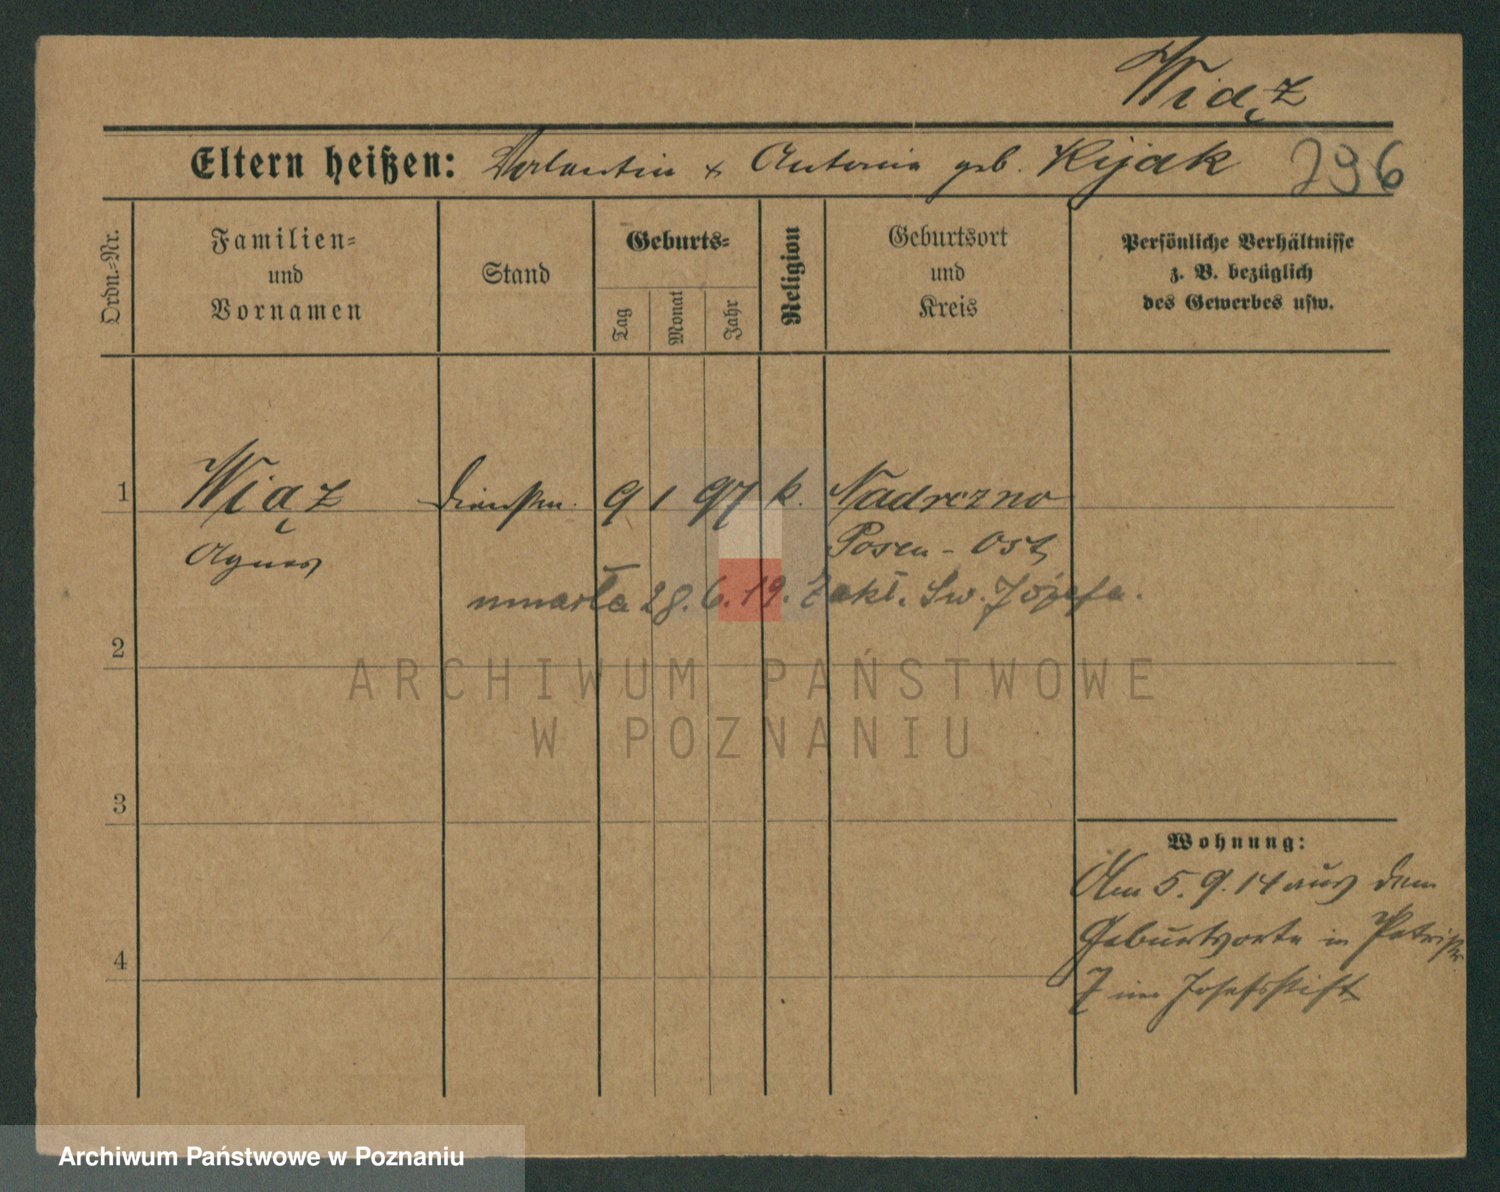 Wiąz
Eltern heißen: Valentin & Antonia geb. Kijak 296
Ordn.-Nr.
Familien-
und
Vornamen
Stand
Geburts-
Tag
Monat
Jahr
Religion
Geburtsort
und
Kreis
Persönliche Verhältnisse
z. B. bezüglich
des Gewerbes usw.
1 Wiąz Dienstm. 9 1 97 k. Nadrozno
Agnes Posen-Ost
umarła 28.6.19. Zakł. Św. Józefa.
2
3
4
Wohnung:
Am 5.9.14 aus dem
Geburtsorte in Petristr
7 im Josefsstift
ARCHIWUM PAŃSTWOWE
W POZNANIU
Archiwum Państwowe w Poznaniu